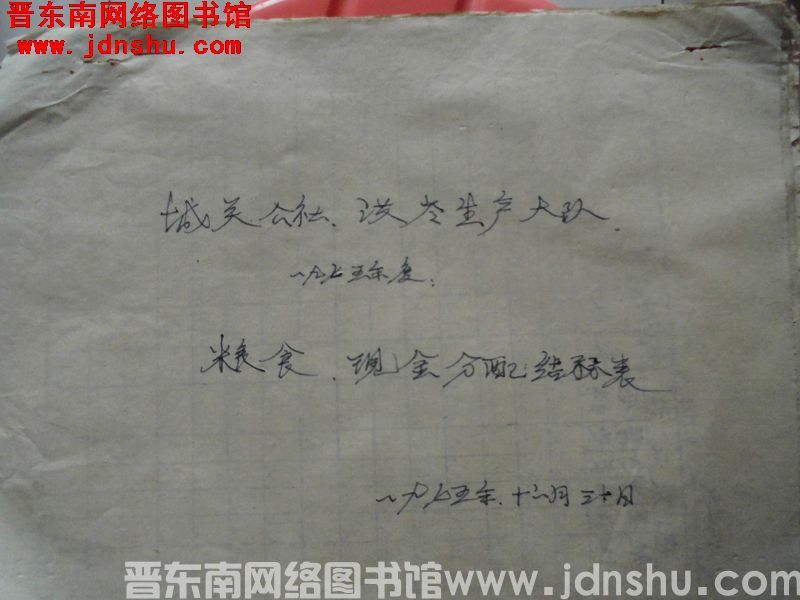 晋东南网络图书馆
www.jdnshu.com
城关公社、汉岑生产大队.
一九七五年度.
粮食、现金分配结算表
一九七五年.十二月三十日
晋东南网络图书馆www.jdnshu.com